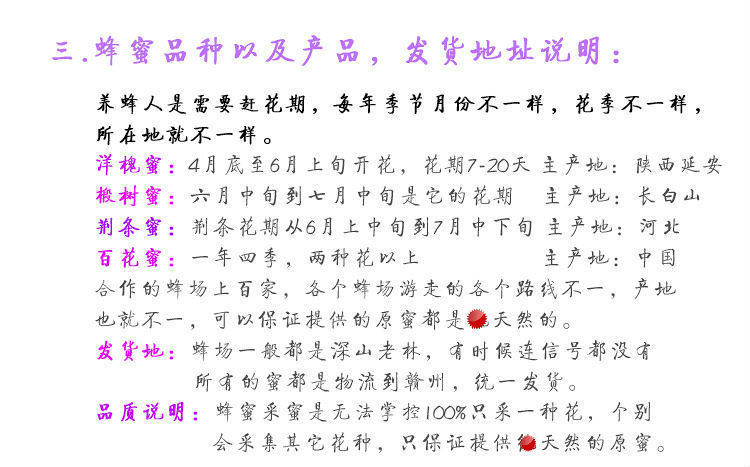 三.蜂蜜品种以及产品，发货地址说明：
养蜂人是需要赶花期，每年季节月份不一样，花季不一样，
所在地就不一样。
洋槐蜜：4月底至6月上旬开花，花期7-20天 主产地：陕西延安
椴树蜜：六月中旬到七月中旬是它的花期 主产地：长白山
荆条蜜：荆条花期从6月上中旬到7月中下旬 主产地：河北
百花蜜：一年四季，两种花以上 主产地：中国
合作的蜂场上百家，各个蜂场游走的各个路线不一，产地
也就不一，可以保证提供的原蜜都是天然的。
发货地：蜂场一般都是深山老林，有时候连信号都没有
所有的蜜都是物流到赣州，统一发货。
品质说明：蜂蜜采蜜是无法掌控100%只采一种花，个别
会采集其它花种，只保证提供天然的原蜜。